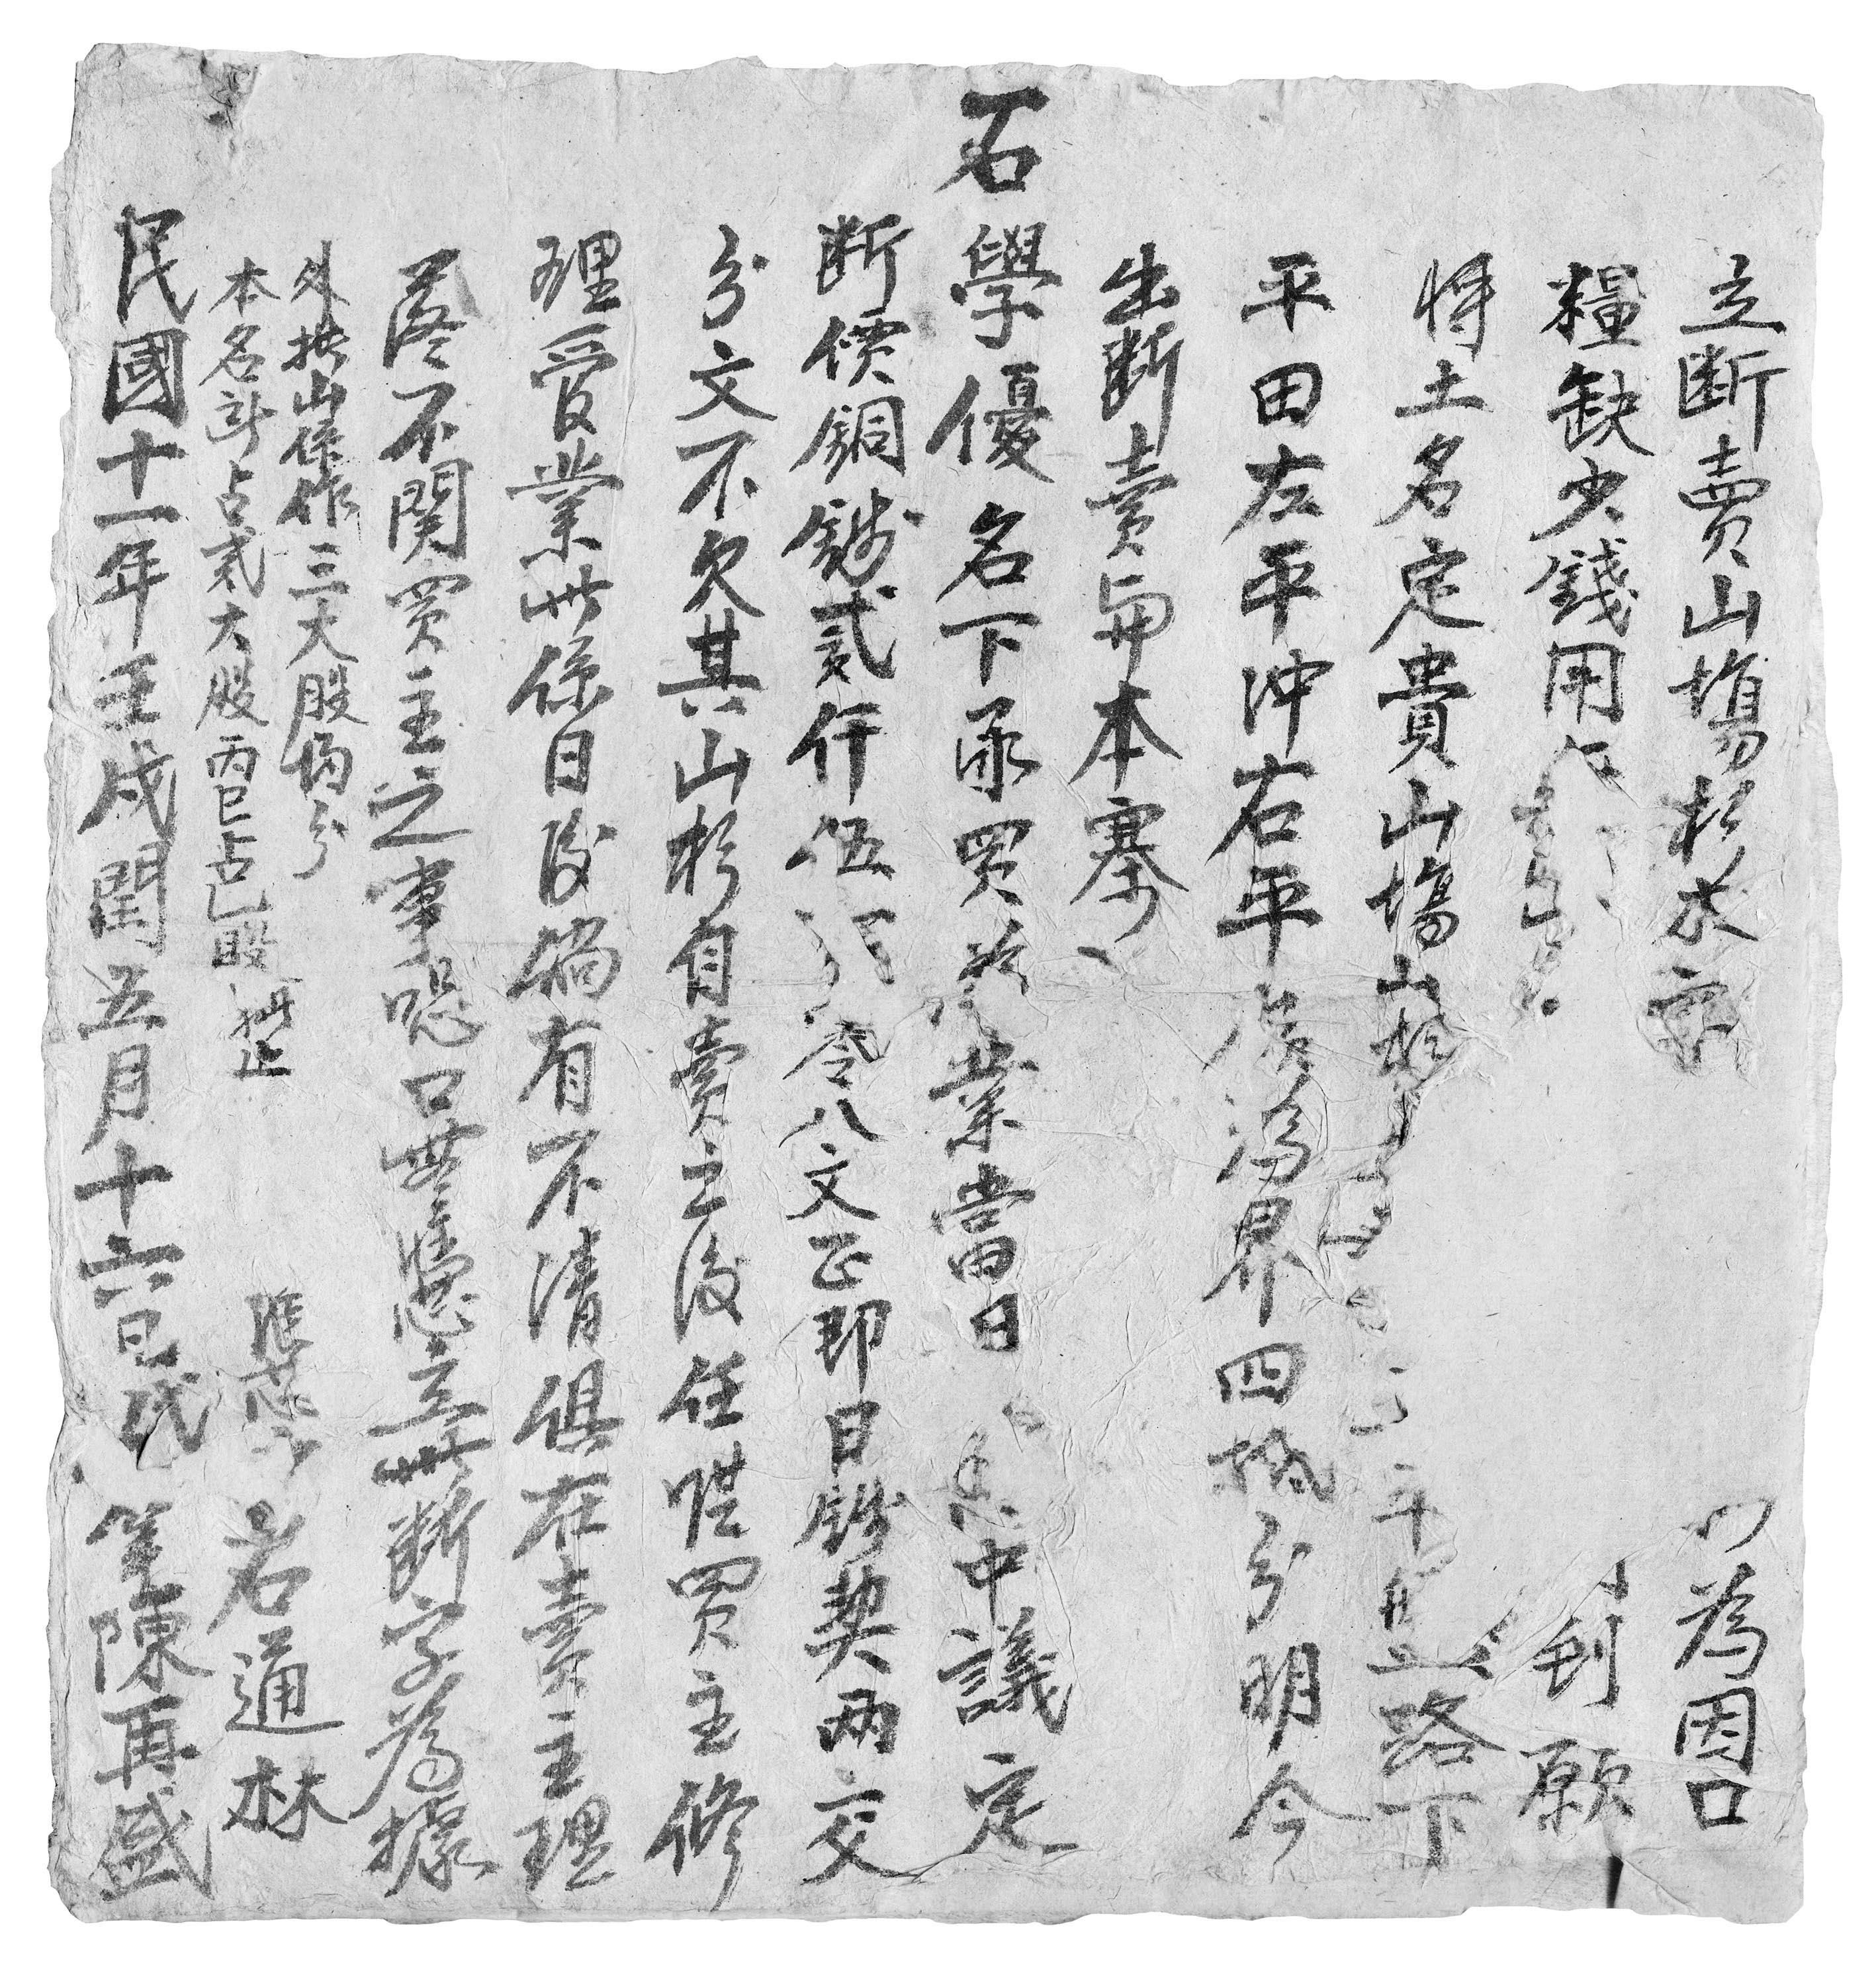 立断賣山塲杉木字為因口
糧缺少錢用到願
將土名定貴山塲山杉平路下
平田左平冲右平為界四抵分明今
出断賣與本寨
石學優名下承買為業當日中議定
断價銅錢貳仟伍零八文正即日錢契兩交
分文不欠其山杉自賣之後任凴買主修
理受業此係日後倘有不清俱在賣主理
落不関買主之事恐口無憑立此断字為據
外批山係作三大股均分
本名詞占貳大股丙巳占乙股批止
憑中岩通林
民國十一年壬戌閏五月十六日代筆陳再盛